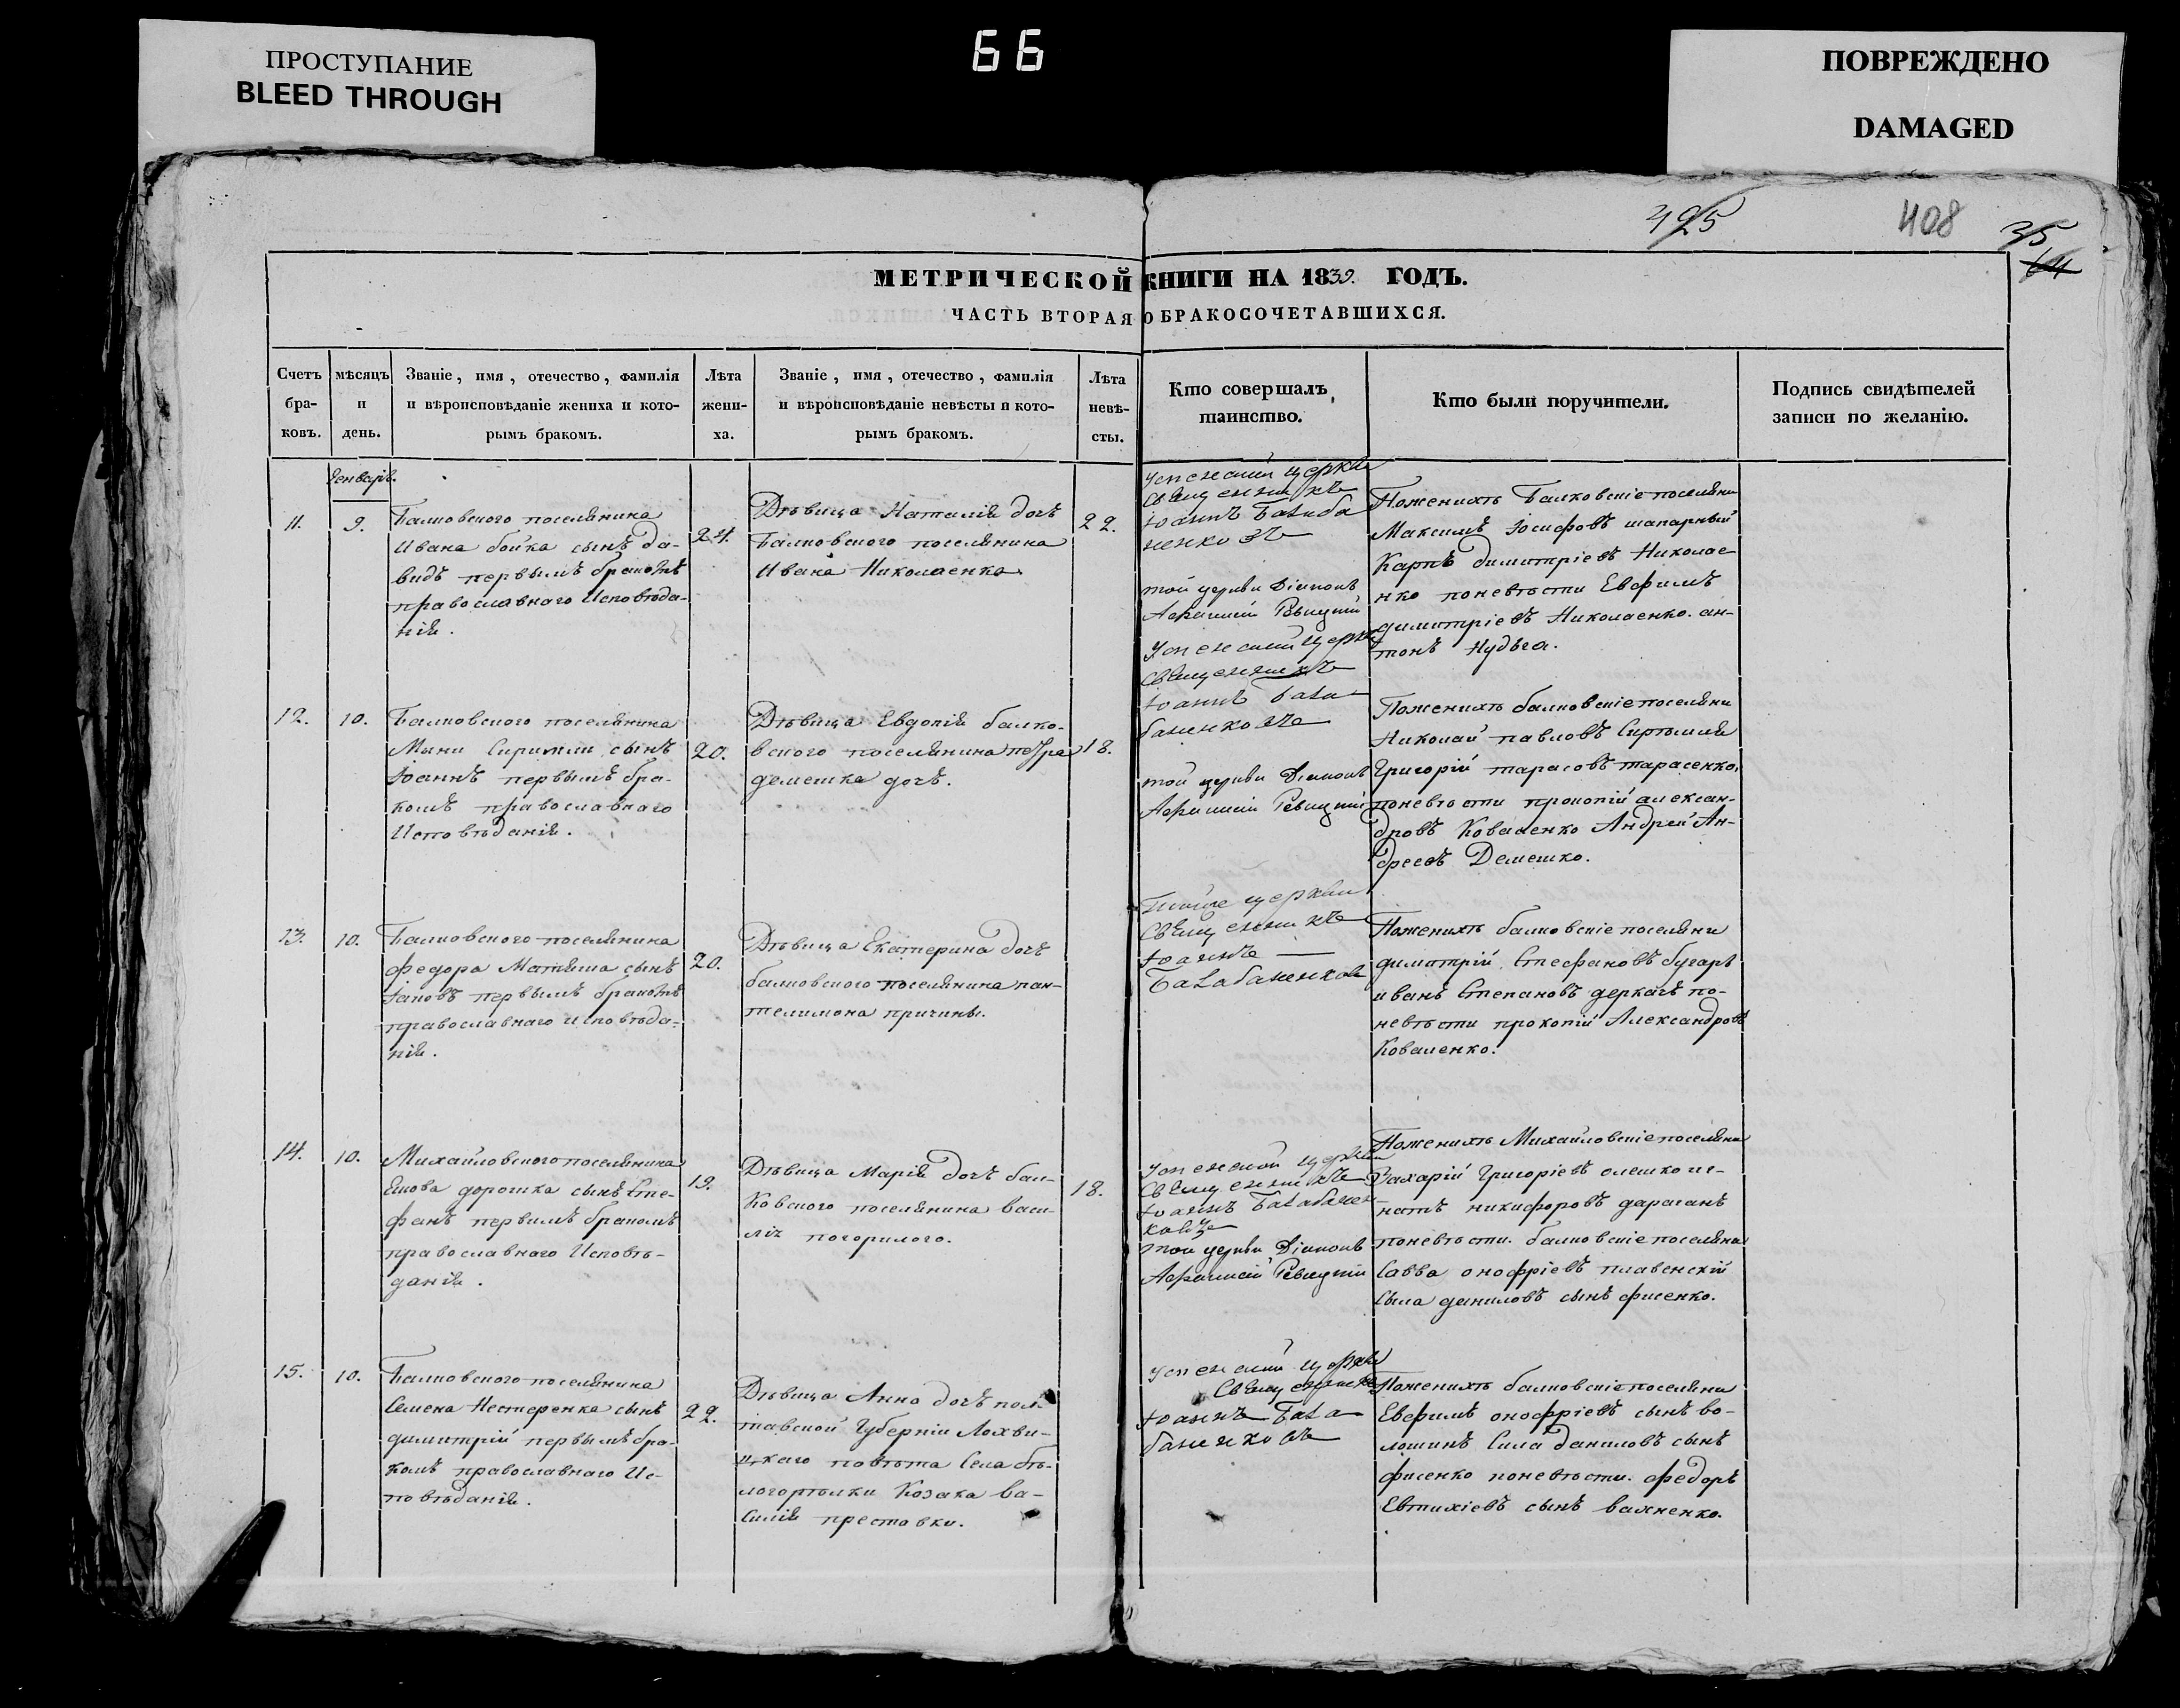 ПРОСТУПАНИЕ
BLEED THROUGH
66
ПОВРЕЖДЕНО
DAMAGED
425
408
35
64
МЕТРИЧЕСКОЙ КНИГИ НА 1839. ГОДЪ.
ЧАСТЬ ВТОРАЯ О БРАКОСОЧЕТАВШИХСЯ.
Счетъ бра- ковъ.
мѣсяцъ и день.
Званіе, имя, отечество, фамилія
и вѣроисповѣданіе жениха и кото-
рымъ бракомъ.
Лѣта жени- ха.
Званіе, имя, отечество, фамилія
и вѣроисповѣданіе невѣсты и кото-
рымъ бракомъ.
Лѣта невѣ- сты.
Кто совершалъ
таинство.
Кто были поручители.
Подпись свидѣтелей
записи по желанію.
Генварь.
11.
9.
Балковского поселянина
Ивана бойка сынъ да-
видъ первымъ бракомъ
православнаго Исповѣда-
нія.
24.
Дѣвица Наталія дочь
Балковского поселянина
Ивана Николаенка
22.
Успенской церкви
Священникъ
Іоаннъ Балаба
ненковъ
той церкви Діаконъ
Ревуцкій
Поженихѣ Балковскіе поселяни
Максимъ Іосифовъ шапарный
Карпъ димитріевъ Николае
нко поневѣсти Евфимъ
димитріевъ Николаенко. ан-
тонъ Нудьга.
12.
10.
Балковского поселянина
сынъ
Іоаннъ первымъ бра-
комъ православнаго
Исповѣданія.
20.
Дѣвица Евдокія балко-
вского поселянина петра
демешка дочь.
18.
Успенской церкви
Священникъ
Іоаннъ Бала
баненковъ
той церкви Діаконъ
Ревуцкій
Поженихѣ балковскіе поселяни
Николай павловъ
Григорій тарасовъ тарасенко.
поневѣсти прокопій алексан-
дровъ Коваленко Андрей Ан-
дреевъ Демешко.
13.
10.
Балковского поселянина
федора сынъ
Іаковъ первымъ бракомъ
православнаго исповѣда-
нія.
20.
Дѣвица Екатерина дочь
балковского поселянина пан-
телимона причины.
церкви
Священникъ
Іоаннъ
Балабаненковъ
Поженихѣ балковскіе поселяни
димитрій Стефановъ бугаръ
иванъ Степановъ деркачъ по-
невѣсти прокопій Александровъ
Коваленко.
14.
10.
Михайловского поселянина
Якова дорошка сынъ Сте-
фанъ первымъ бракомъ
православнаго Исповѣ-
данія.
19.
Дѣвица Марія дочь бал-
ковского поселянина васи-
лія погорилого.
18.
Успенской церкви
Священникъ
Іоаннъ Балабанен
ковъ
той церкви Діаконъ
Ревуцкій
Поженихѣ Михайловскіе поселяни
Захарій Григоріевъ олешко иг-
натъ никифоровъ дараганъ
поневѣсти. балковскіе поселяни
Савва онофріевъ плавенскій
Сила даниловъ сынъ фисенко.
15.
10.
Балковского поселянина
Семена Нестеренка сынъ
димитрій первымъ бра-
комъ православнаго Ис-
повѣданія.
22.
Дѣвица Анна дочь пол-
тавской Губерніи Лохви-
цкаго повѣта Села бѣ-
логорѣлки Козака ва-
силія преставки.
Успенской церкви
Священникъ
Іоаннъ Бала
баненковъ
Поженихѣ балковскіе поселяни
Евфимъ онофріевъ сынъ во-
лошинъ Сила даниловъ сынъ
фисенко поневѣсти. федоръ
Евтихіевъ сынъ вахненко.